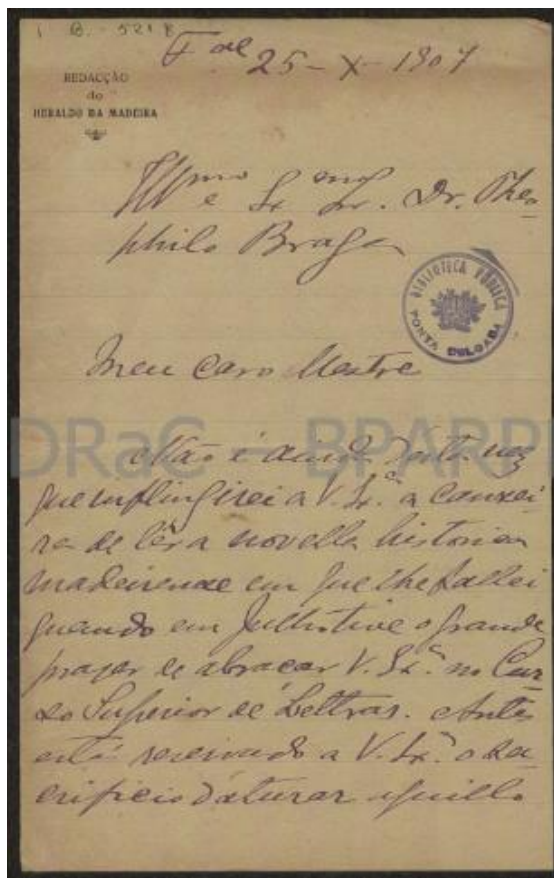 1 B. - 521 8
F.al 25-X-1907
REDACÇÃO
do
HERALDO DA MADEIRA
Illmo e Exmo Sr. Dr. Theo-
philo Braga
BIBLIOTECA PUBLICA
PONTA DELGADA
Meu caro Mestre
DRaC - BPARP
Não é ainda desta vez
que inflingirei a V. Ex.ª a canxei-
ra de lêr a novella historica
madeirense em que lhe fallei
quando em Julho tive o grande
prazer de abraçar V. Ex.ª no Cur-
so Superior de Lettras. Antes
está reservado a V. Ex.ª o sa-
crificio d'aturar aquillo